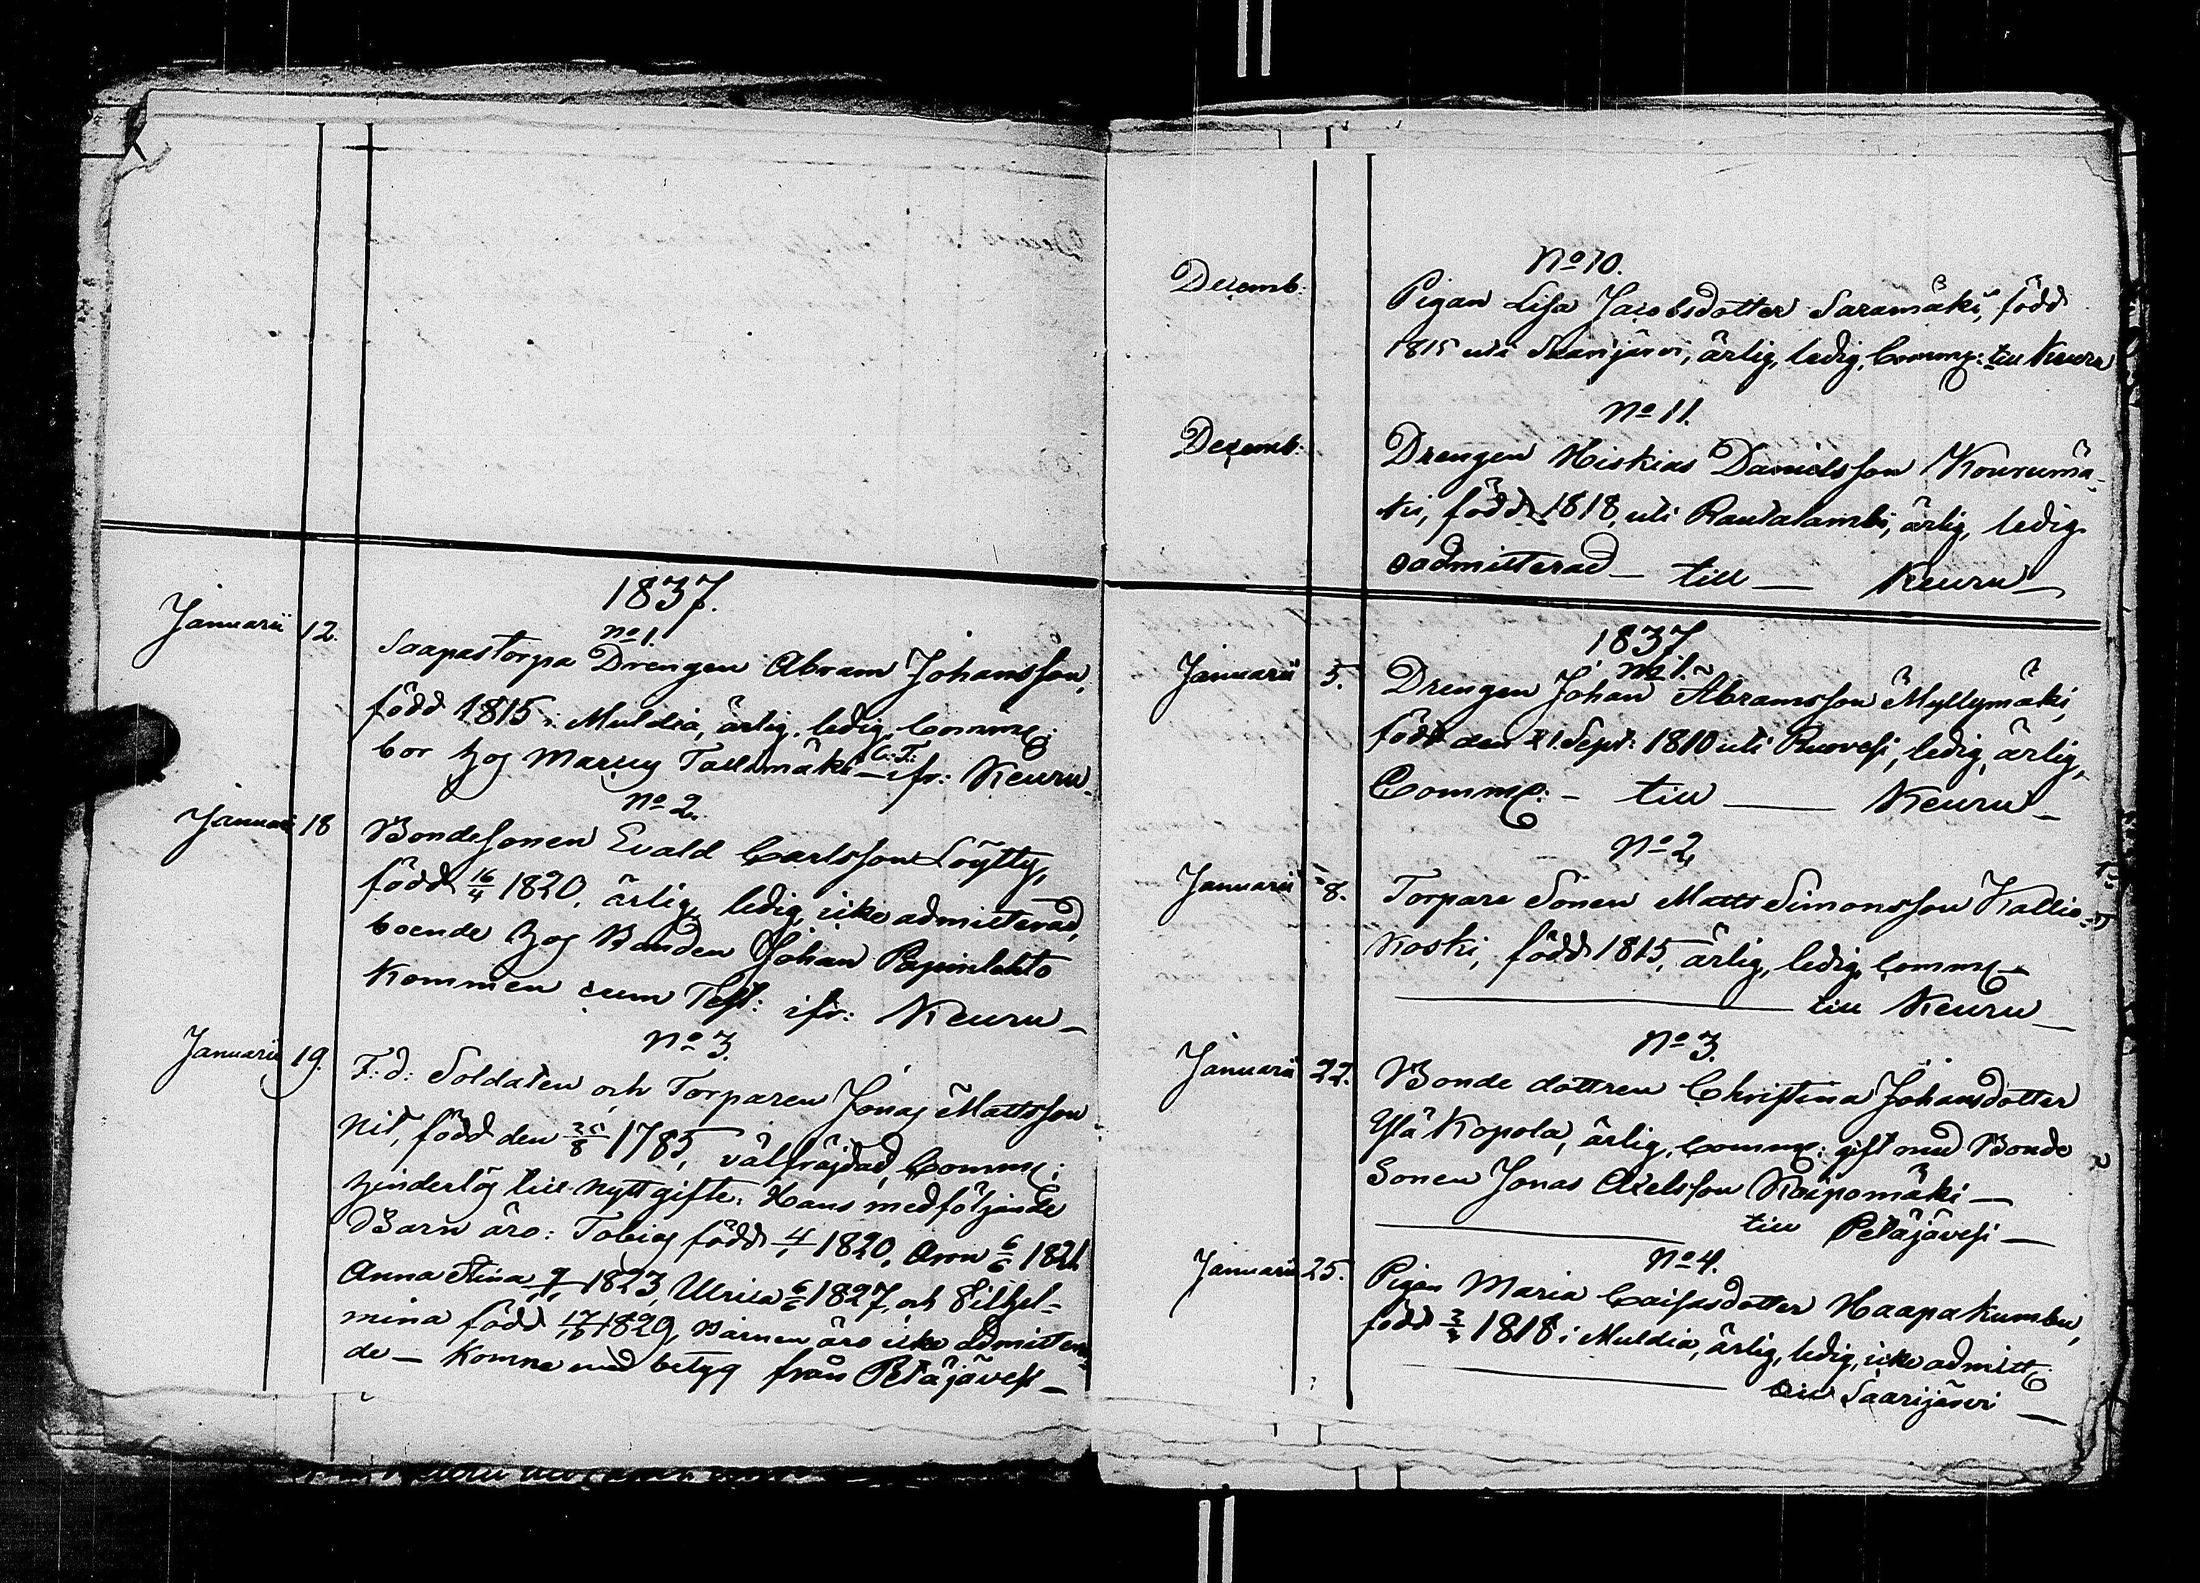 1837.
No 1.
Januarii 12. Saapastorpa Drengen Abram Johansson,
född 1815 i Muldia, ärlig, ledig, Comme:
bor hos Matts Tallamäki C: T: ifr: Keuru
No 2.
Januarii 18 Bondesonen Evald Carlsson Löytty,
född 16/4 1820, ärlig, ledig, icke admitterad,
boende hos Bonden Johan Papinlahto
Kommen cum Test: ifr: Keuru
No 3.
Januarii 19. F:d: Soldaten och Torparen Jonas Mattsson
Nit, född den 1785, välfräjdad, Comme:
hinderlös till nytt gifte. Hans medföljande
Barn äro: Tobias född 4/1 1820, Aron 6/6 1821
Anna Stina 1823, Ulrica 6/6 1827, och Vilhel-
mina född 1829, Barnen äro icke admittera-
de — Komne med betyg från Petäjävesi
No 10.
Decemb: Pigan Lisa Jacobsdotter Saramäki, född
1815 uti Saarijärvi, ärlig, ledig, Comme: till Keuru
No 11.
Decemb: Drengen Hiskias Danielsson Kourumä-
ki, född 1818, uti Rautalambi, ärlig, ledig
oadmitterad — till — Keuru
1837
No 1.
Januarii 5. Drengen Johan Abramsson Myllymäki,
född den 21 Sept: 1810 uti Ruovesi, ledig, ärlig,
Comme: — till — Keuru
No 2
Januarii 8. Torpare Sonen Matts Simonsson Kallio-
koski, född 1815, ärlig, ledig, Comme
till Keuru
No 3.
Januarii 22. Bonde dottren Christina Johansdotter
Ylä Kopola, ärlig, Comme: gift med Bonde
Sonen Jonas Axelsson Roipomäki —
till Petäjävesi —
No 4.
Januarii 25. Pigan Maria Caisasdotter Haapakumbu,
född 1818 i Muldia, ärlig, ledig, icke admitt:
till Saarijärvi